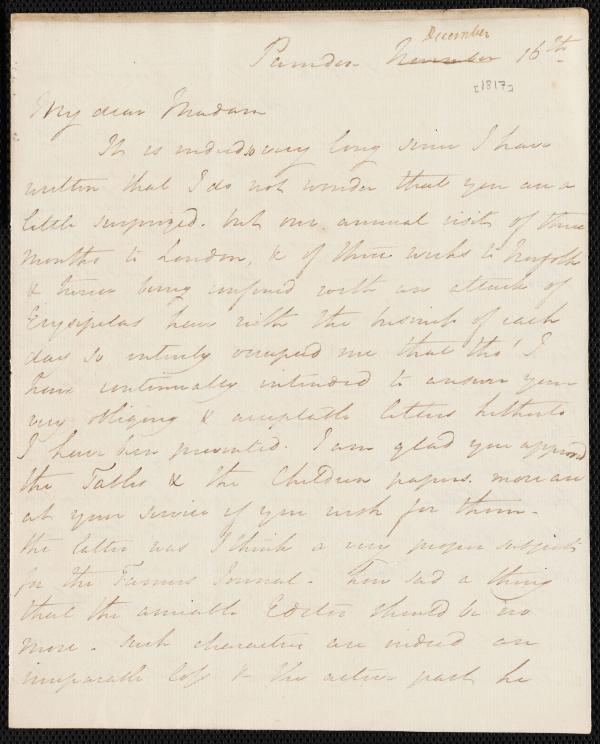 December
November 16th
[1817]
My dear Madam
It is indeed so very long since I have
written that I do not wonder that you are a
little surprized. but our annual visit of three
months to London, & of three weeks to Norfolk
& twice being confined with an attack of
Erysipelas have with the business of each
day so entirely occupied me that tho' I
have continually intended to answer your
very obliging & acceptable letters hitherto
I have been prevented. I am glad you approved
the Tables & the Children papers. more are
at your service if you wish for them.
the latter was I think a very proper subject
for the Farmers Journal. How sad a thing
that the amiable Editor should be no
more. such characters are indeed an
irreparable loss & the active part he